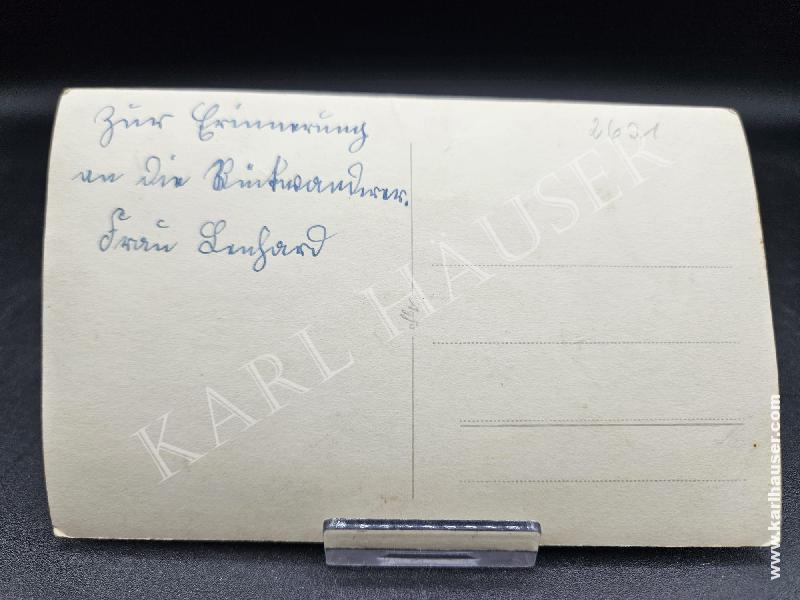 Zur Erinnerung
an die Rückwanderer.
Frau Lenhard
2631
KARL HÄUSER
www.karlhauser.com